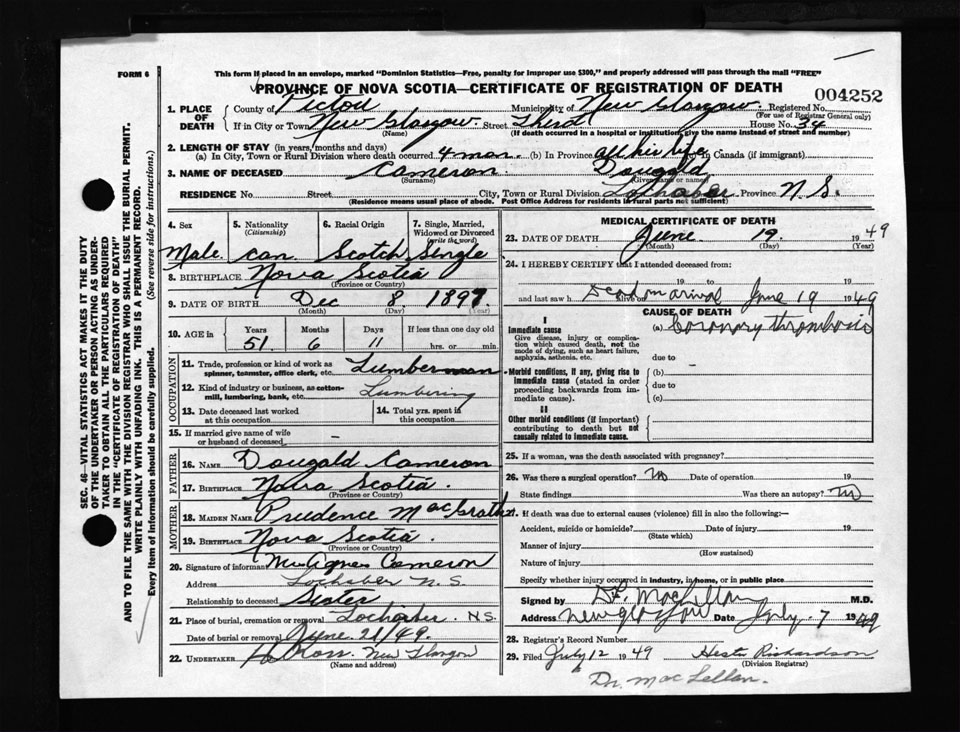 FORM 6
This form if placed in an envelope, marked "Dominion Statistics—Free, penalty for improper use $300," and properly addressed will pass through the mail "FREE"
PROVINCE OF NOVA SCOTIA—CERTIFICATE OF REGISTRATION OF DEATH
004252
1. PLACE OF DEATH { County of Pictou Municipality of New Glasgow. Registered No.
(For use of Registrar General only)
If in City or Town New Glasgow. Street Third House No. 34
(Name) (If death occurred in a hospital or institution, give the name instead of street and number)
2. LENGTH OF STAY (in years, months and days)
(a) In City, Town or Rural Division where death occurred 4 mon. (b) In Province all his life (c) In Canada (if immigrant)
3. NAME OF DECEASED Cameron. Dougald
(Surname) (Given name or names)
RESIDENCE No. Street City, Town or Rural Division Lochaber Province N.S.
(Residence means usual place of abode. Post Office Address for residents in rural parts not sufficient)
4. Sex 5. Nationality (Citizenship) 6. Racial Origin 7. Single, Married, Widowed or Divorced (write the word)
Male. Can. Scotch Single
8. BIRTHPLACE Nova Scotia
(Province or Country)
9. DATE OF BIRTH Dec 8. 1897
(Month) (Day) (Year)
10. AGE in { Years Months Days If less than one day old
51 6 11 hrs. or min.
OCCUPATION
11. Trade, profession or kind of work as spinner, teamster, office clerk, etc. Lumberman
12. Kind of industry or business, as cotton-mill, lumbering, bank, etc. Lumbering
13. Date deceased last worked at this occupation 14. Total yrs. spent in this occupation
15. If married give name of wife or husband of deceased –
FATHER
16. NAME Dougald Cameron
17. BIRTHPLACE Nova Scotia
(Province or Country)
MOTHER
18. MAIDEN NAME Prudence MacGrath
19. BIRTHPLACE Nova Scotia.
(Province or Country)
20. Signature of informant Mrs Agnes Cameron
Address Lochaber N.S.
Relationship to deceased Sister
21. Place of burial, cremation or removal Lochaber N.S.
Date of burial or removal June 21/49.
22. UNDERTAKER Ross. New Glasgow
(Name and address)
MEDICAL CERTIFICATE OF DEATH
23. DATE OF DEATH June. 19. 1949
(Month) (Day) (Year)
24. I HEREBY CERTIFY that I attended deceased from:
19 to 19
and last saw h alive on Dead on arival June 19 1949
CAUSE OF DEATH
I
Immediate cause
Give disease, injury or complication which caused death, not the mode of dying, such as heart failure, asphyxia, asthenia, etc.
(a) Coronary thrombosis
due to
Morbid conditions, if any, giving rise to immediate cause (stated in order proceeding backwards from immediate cause).
(b)
due to
(c)
II
Other morbid conditions (if important) contributing to death but not causally related to immediate cause.
25. If a woman, was the death associated with pregnancy?
26. Was there a surgical operation? No Date of operation 19
State findings Was there an autopsy? No
27. If death was due to external causes (violence) fill in also the following:—
Accident, suicide or homicide? Date of injury 19
(State which)
Manner of injury
(How sustained)
Nature of injury
Specify whether injury occurred in industry, in home, or in public place
Signed by MacLellan M.D.
Address New Glasgow Date July 7 1949
28. Registrar's Record Number
29. Filed July 12 1949 Richardson
(Division Registrar)
Dr. MacLellan.
SEC. 46—VITAL STATISTICS ACT MAKES IT THE DUTY
OF THE UNDERTAKER OR PERSON ACTING AS UNDER-
TAKER TO OBTAIN ALL THE PARTICULARS REQUIRED
IN THE "CERTIFICATE OF REGISTRATION OF DEATH"
AND TO FILE THE SAME WITH THE DIVISION REGISTRAR WHO SHALL ISSUE THE BURIAL PERMIT.
WRITE PLAINLY WITH UNFADING INK. THIS IS A PERMANENT RECORD.
Every item of information should be carefully supplied. (See reverse side for instructions.)